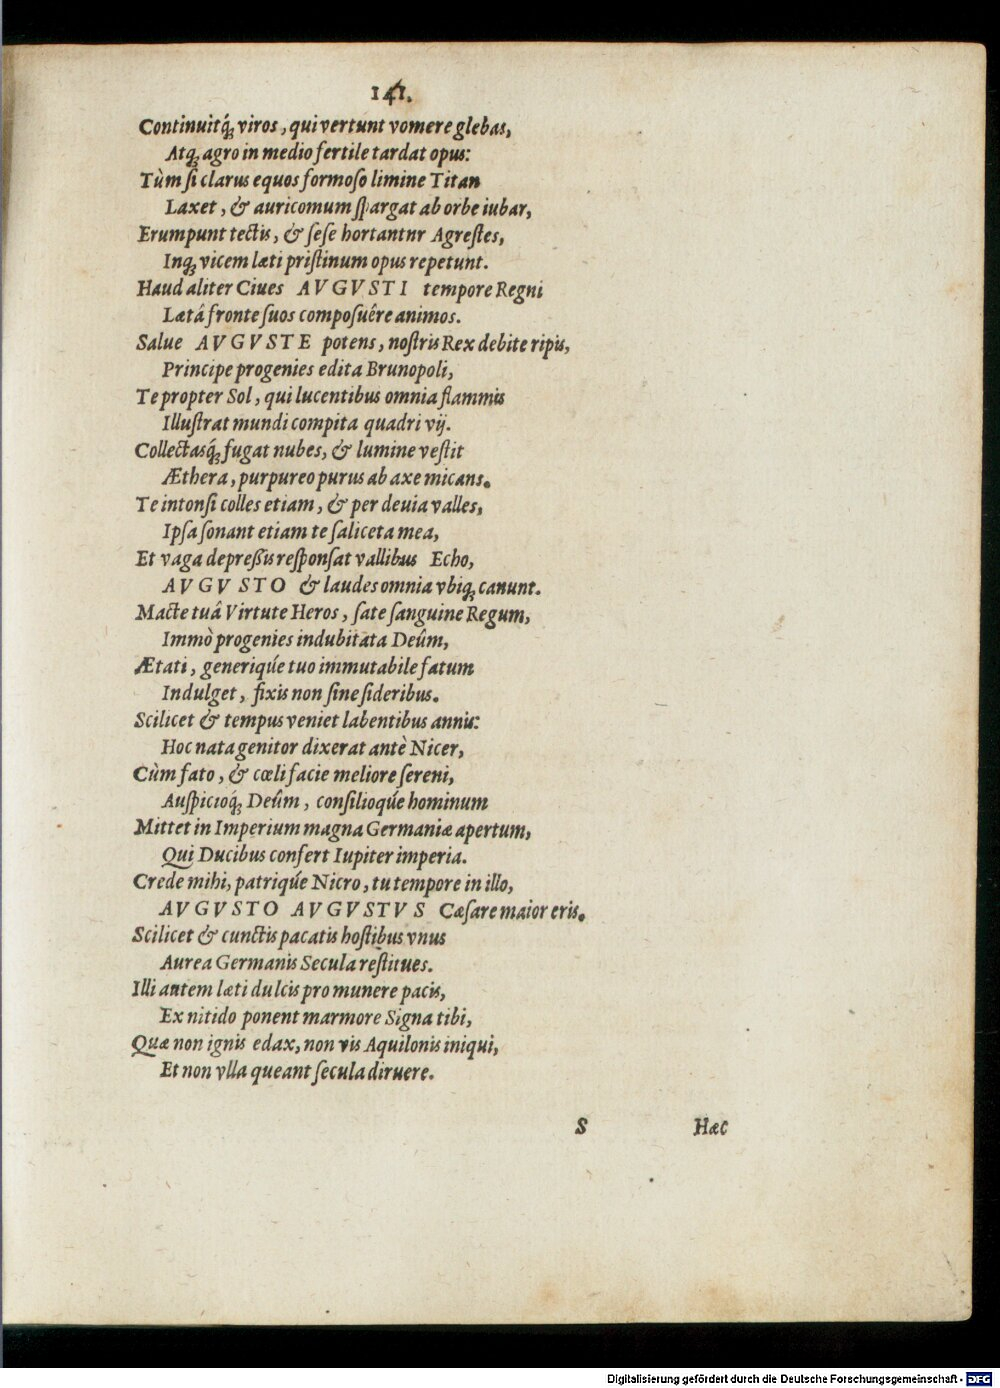 141.
Continuitq́; viros, qui vertunt vomere glebas,
Atq; agro in medio fertile tardat opus:
Tùm si clarus equos formoso limine Titan
Laxet, & auricomum spargat ab orbe iubar,
Erumpunt tectis, & sese hortantnr Agrestes,
Inq; vicem læti pristinum opus repetunt.
Haud aliter Ciues AVGVSTI tempore Regni
Lætâ fronte suos composuêre animos.
Salue AVGVSTE potens, nostris Rex debite ripis,
Principe progenies edita Brunopoli,
Te propter Sol, qui lucentibus omnia flammis
Illustrat mundi compita quadri vij.
Collectasq́; fugat nubes, & lumine vestit
Æthera, purpureo purus ab axe micans.
Te intonsi colles etiam, & per deuia valles,
Ipsa sonant etiam te saliceta mea,
Et vaga depreßis responsat vallibus Echo,
AVGVSTO & laudes omnia vbiq; canunt.
Macte tuâ Virtute Heros, sate sanguine Regum,
Immò progenies indubitata Deûm,
Ætati, generiqúe tuo immutabile fatum
Indulget, fixis non sine sideribus.
Scilicet & tempus veniet labentibus annis:
Hoc nata genitor dixerat antè Nicer,
Cùm fato, & cœli facie meliore sereni,
Auspicioq́; Deûm, consilioqúe hominum
Mittet in Imperium magna Germaniæ apertum,
Qui Ducibus confert Iupiter imperia.
Crede mihi, patriqúe Nicro, tu tempore in illo,
AVGVSTO AVGVSTVS Cæsare maior eris.
Scilicet & cunctis pacatis hostibus vnus
Aurea Germanis Secula restitues.
Illi autem læti dulcis pro munere pacis,
Ex nitido ponent marmore Signa tibi,
Quæ non ignis edax, non vis Aquilonis iniqui,
Et non vlla queant secula diruere.
S Hæc
Digitalisierung gefördert durch die Deutsche Forschungsgemeinschaft - DFG